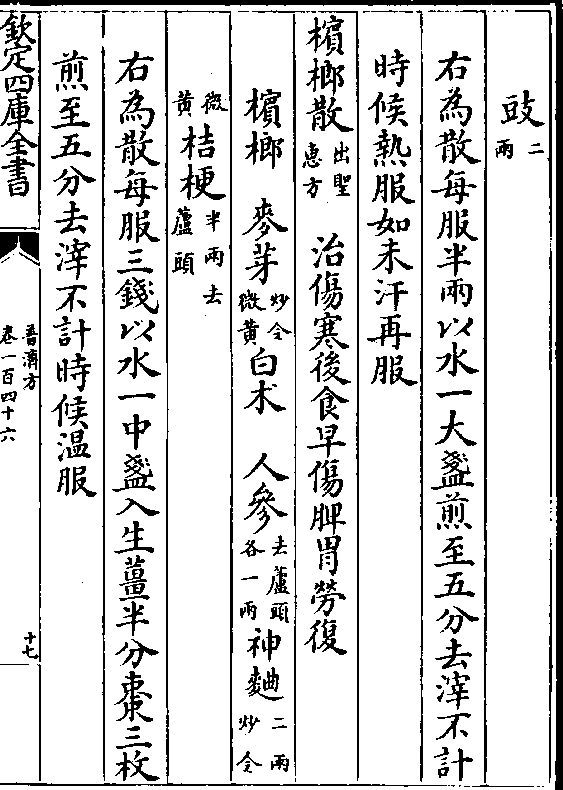 豉二兩
右為散每服半兩以水一大盞煎至五分去滓不計
時候熱服如未汗再服
檳榔散出聖惠方　治傷寒後食早傷脾胃勞復
檳榔　麥芽炒令微黃　白术　人參去蘆頭各一兩　神麯二兩炒令
微黃　桔梗半兩去蘆頭
右為散每服三錢以水一中盞入生薑半分棗三枚
煎至五分去滓不計時候溫服
欽定四庫全書
普濟方
卷一百四十六
十七